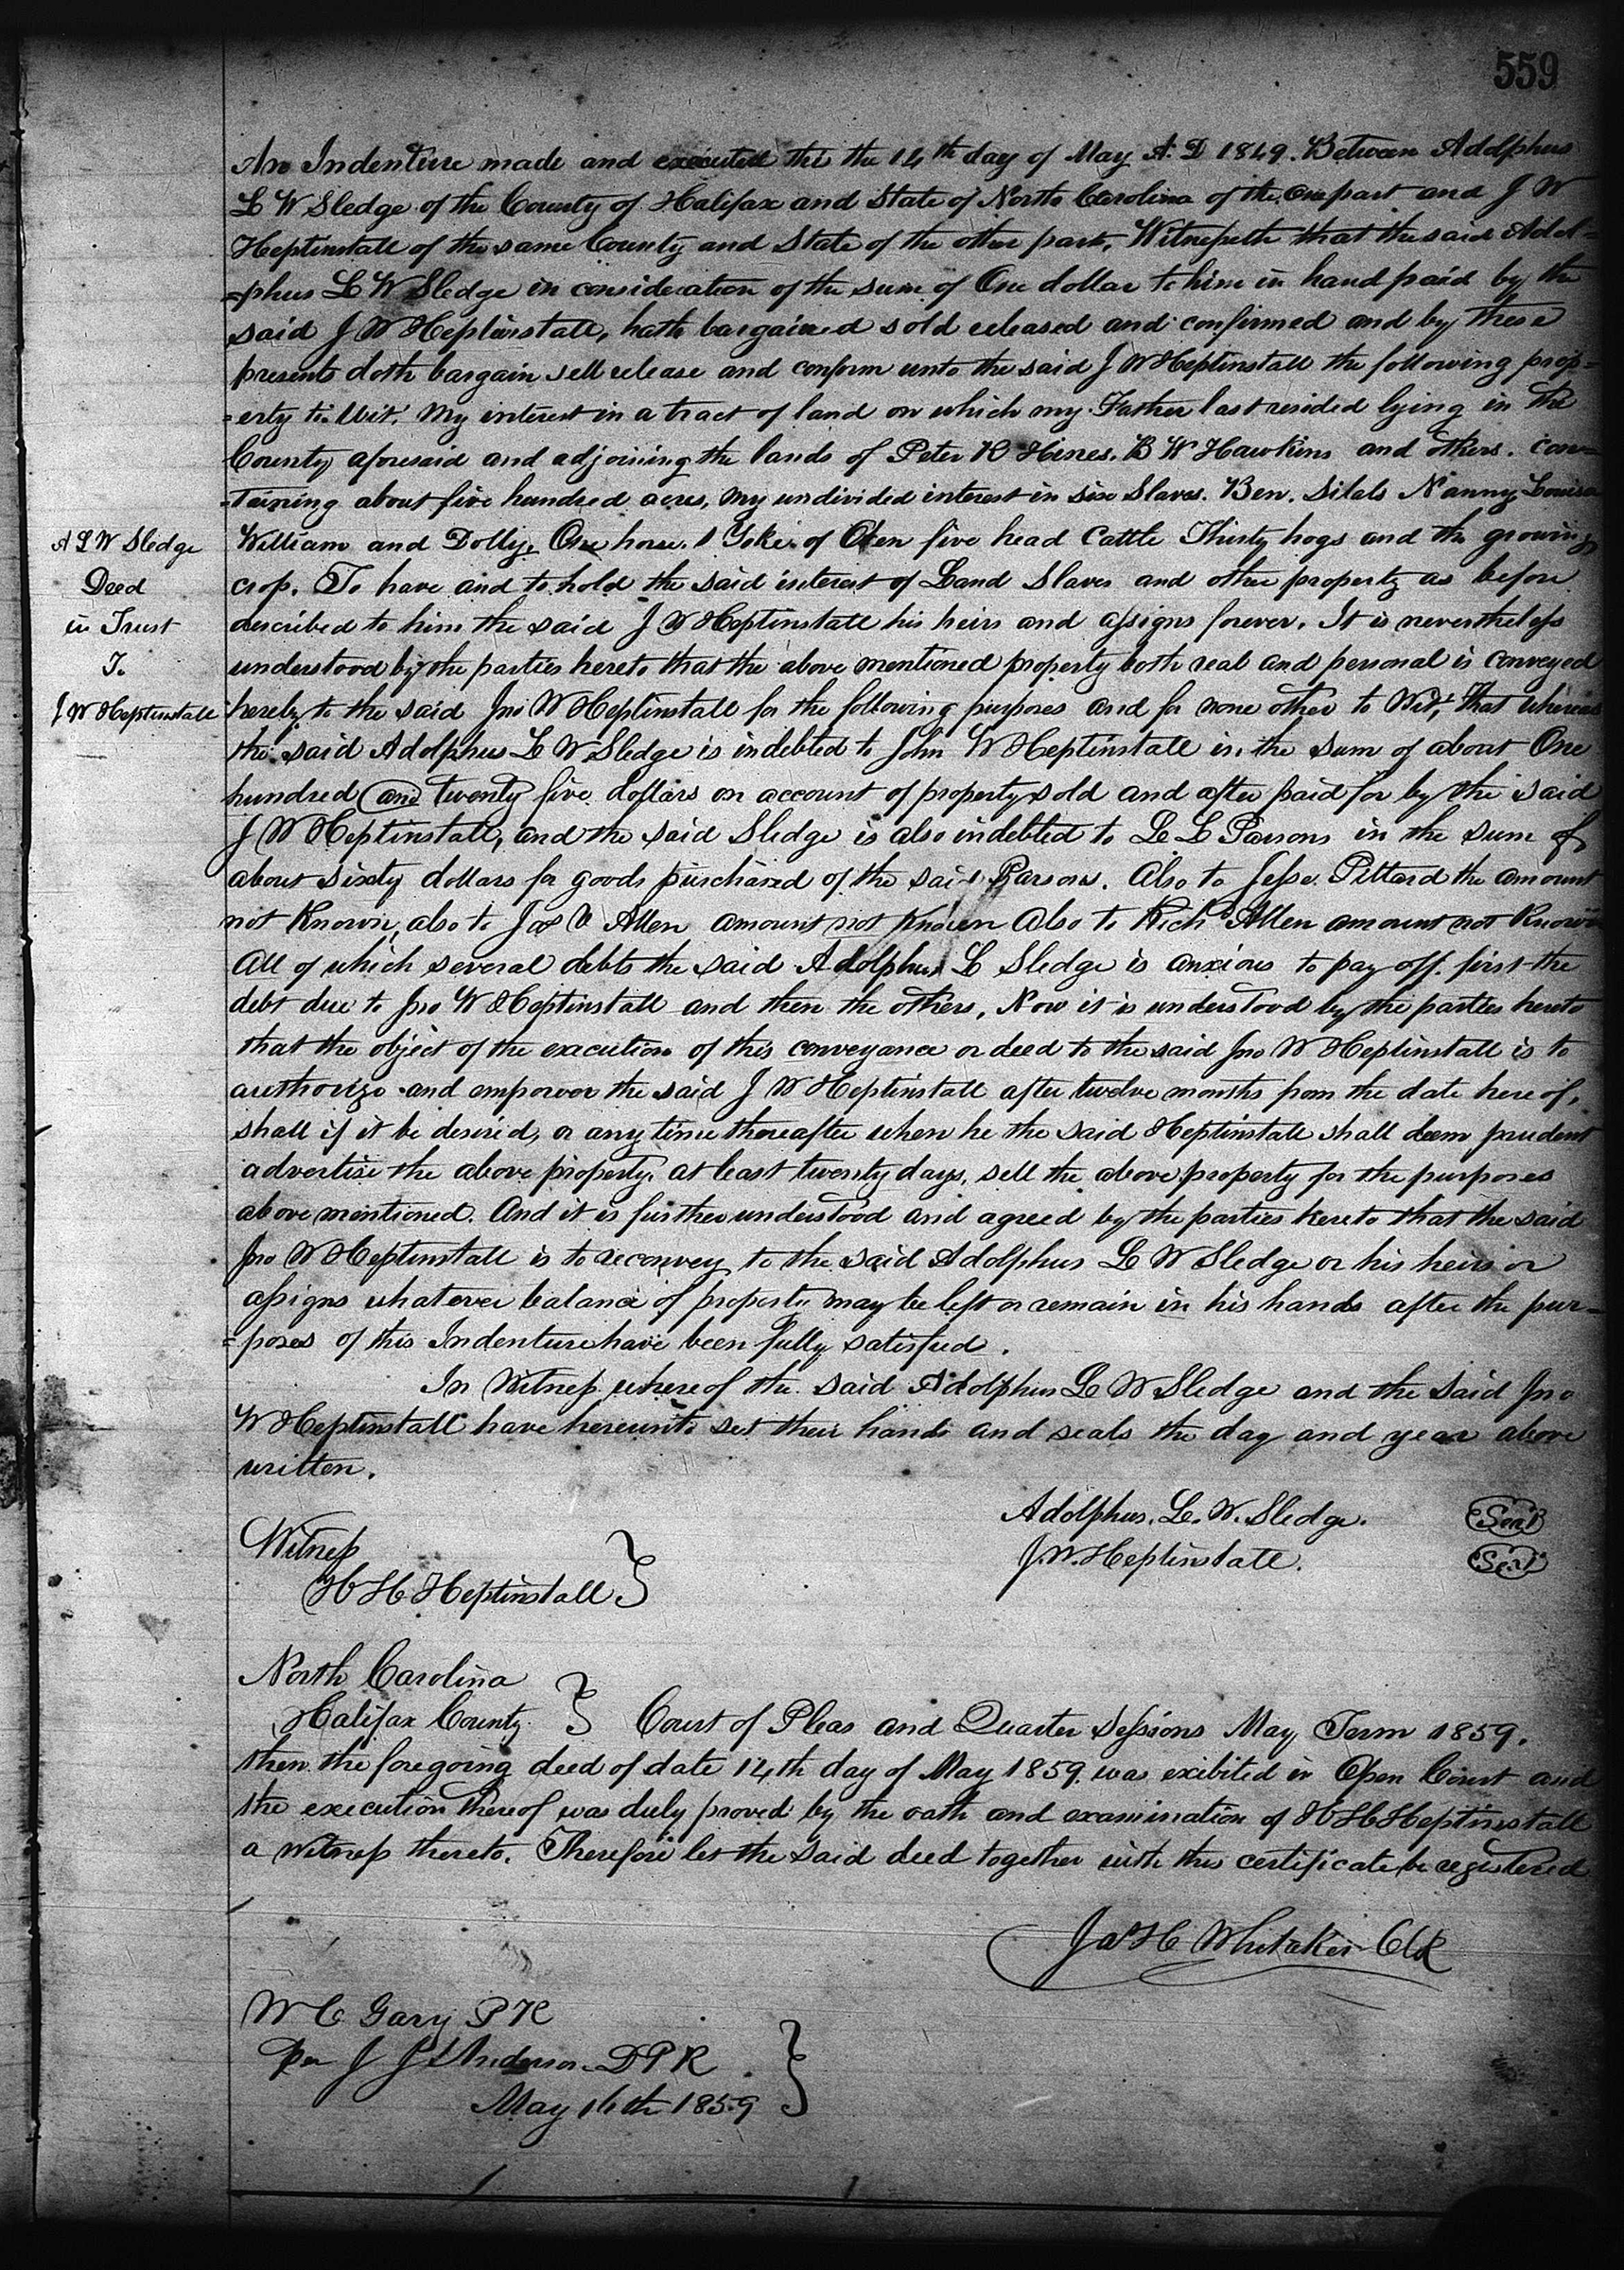 559
An Indenture made and executed this the 14th day of May A. D 1849. Between Adolphus
L W Sledge of the County of Halifax and State of North Carolina of the one part and J W
Heptinstall of the same County and State of the other part, Witnesseth that the said Adol=
=phus L W Sledge in consideration of the sum of One dollar to him in hand paid by the
said J W Heptinstall, hath bargained sold released and confirmed and by these
presents doth bargain sell release and conform unto the said J W Heptinstall the following prop=
=erty to Wit. My interest in a tract of land on which my Father last resided lying in the
County aforesaid and adjoining the lands of Peter R Hines. B W Hawkins and others. con=
=taining about five hundred acres, my undivided interest in six Slaves. Ben. Nanny Louisa
A L W Sledge
Deed
in Trust
To
J W Heptinstall
William and Dolly, One horse. 1 Yoke of Oxen five head Cattle Thirty hogs and the growing
crop. To have and to hold the said interest of Land Slaves and other property as before
described to him the said J W Heptinstall his heirs and assigns forever. It is nevertheless
understood by the parties hereto that the above mentioned property both real and personal is conveyed
hereby to the said Jno W Heptinstall for the following purposes and for none other to Wit, That whereas
the said Adolphus L W Sledge is indebted to John W Heptinstall in the sum of about One
hundred and twenty five dollars on account of property sold and after paid for by the said
J W Heptinstall, and the said Sledge is also indebted to L L Parsons in the sum of
about sixty dollars for goods purchased of the said Parsons. Also to Jesse Pittard the amount
not Known, also to Jas V Allen amount not Known Also to Richd Allen amount not Known
All of which several debts the said Adolphus L Sledge is anxious to pay off. first the
debt due to Jno W Heptinstall and then the others, Now it is understood by the parties hereto
that the object of the execution of this conveyance or deed to the said Jno W Heptinstall is to
authorize and empower the said J W Heptinstall after twelve months from the date here of,
shall if it be desired, or any time thereafter when he the said Heptinstall shall deem prudent
advertise the above property. at least twenty days, sell the above property for the purposes
above mentioned. And it is further understood and agreed by the parties hereto that the said
Jno W Heptinstall is to reconvey to the said Adolphus L W Sledge or his heirs or
assigns whatever balance of property may be left or remain in his hands after the pur=
=poses of this Indenture have been fully satisfied.
In Witness whereof the said Adolphus L W Sledge and the said Jno
W Heptinstall have hereunto set their hands and seals the day and year above
written.
Adolphus. L. W. Sledge. Seal
J. W. Heptinstall. Seal
Witness
H H Heptinstall
North Carolina
Halifax County Court of Pleas and Quarter Sessions May Term 1859.
then the foregoing deed of date 14th day of May 1859. was exibited in Open Court and
the execution thereof was duly proved by the oath and examination of H H Heptinstall
a Witness thereto. Therefore let the said deed together with this certificate be registered
Jas H Whitaker Clk
W C Gary P R
Per J J Anderson D P R
May 16th 1859